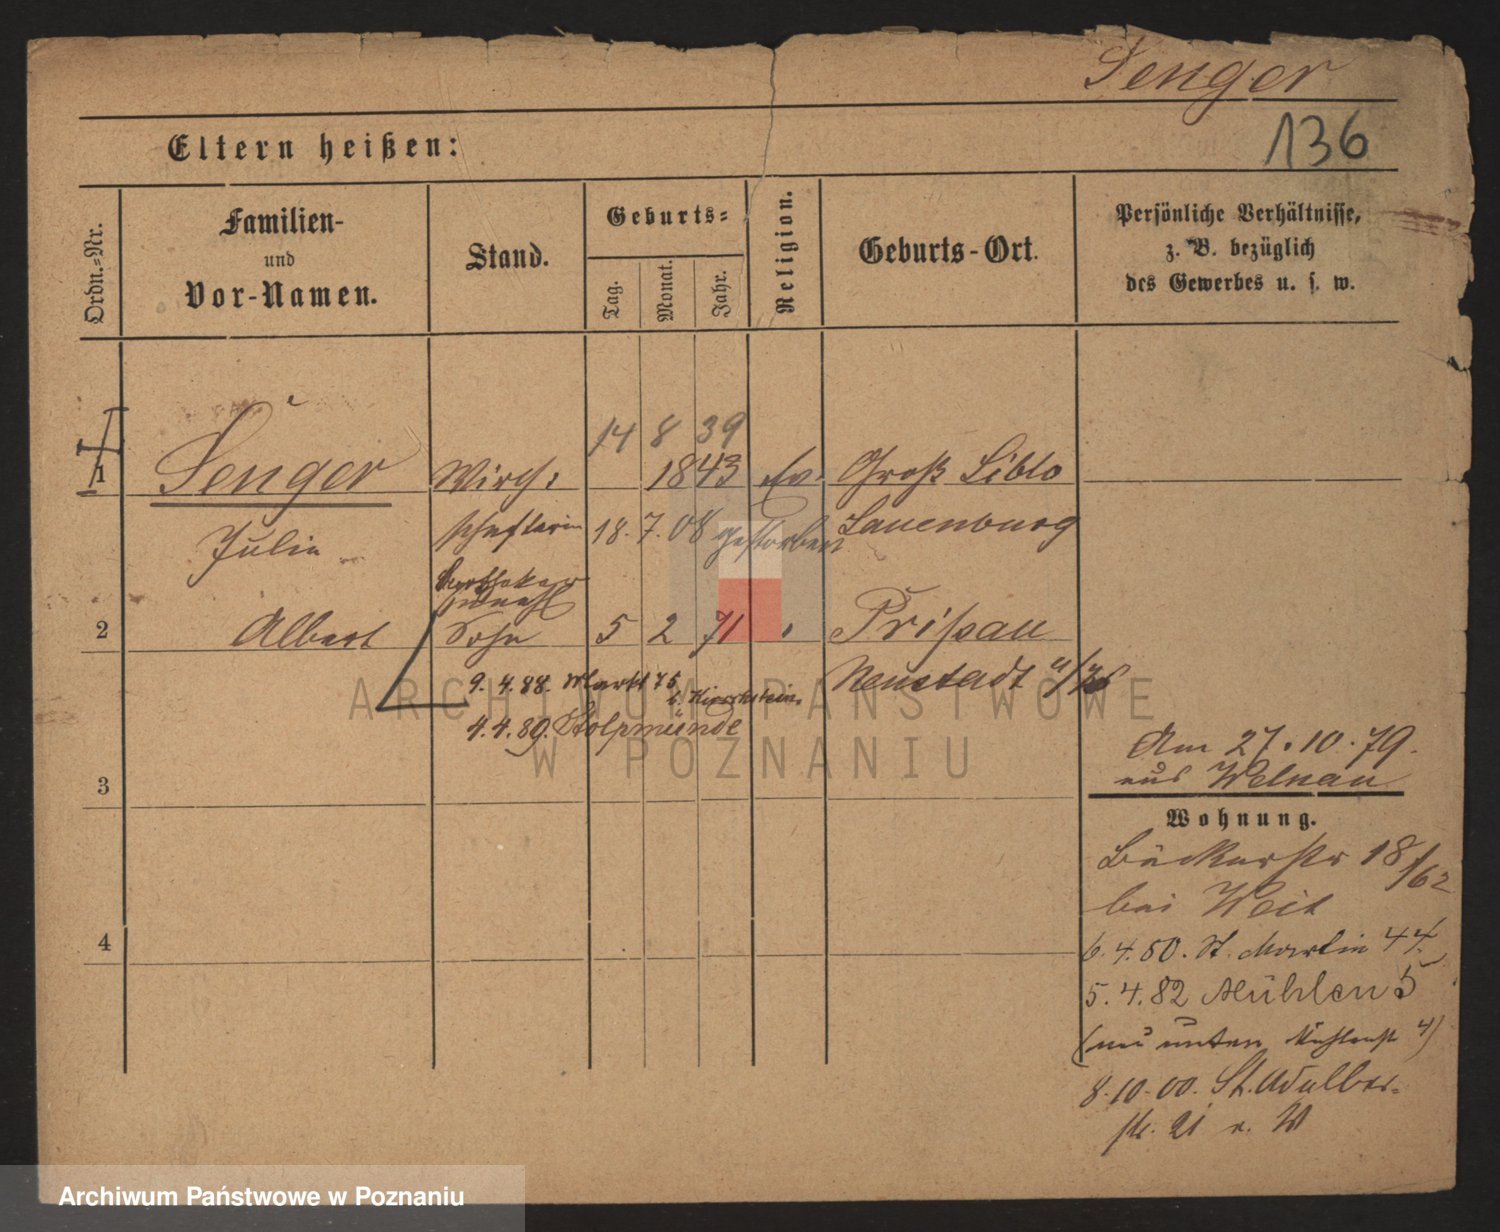 Senger
136
Eltern heißen:
Ordn.-Nr.
Familien-
und
Vor-Namen.
Stand.
Geburts-
Tag.
Monat.
Jahr.
Religion.
Geburts-Ort.
Persönliche Verhältnisse,
z. B. bezüglich
des Gewerbes u. s. w.
14 8 39
1 Senger Wirth- 1843 Ev. Groß Liblo
Julie schafterin 18. 7. 08 gestorben Lauenburg
Apotheker
2 Albert Sohn 5 2 71 Prißau
Neustadt
9. 4. 88. Markt 75
b. Hirschstein
4. 4. 89. Stolpmünde
3
4
Am 27. 10. 79.
aus Welnau
Wohnung.
Bäckerstr 18/62
bei Weit
6. 4. 80. St. Martin 44.
5. 4. 82 Mühlen 5
(neu unten Mühlenst 4)
8. 10. 00. St. Adalber-
str. 21 n. W
ARCHIWUM PAŃSTWOWE
W POZNANIU
Archiwum Państwowe w Poznaniu